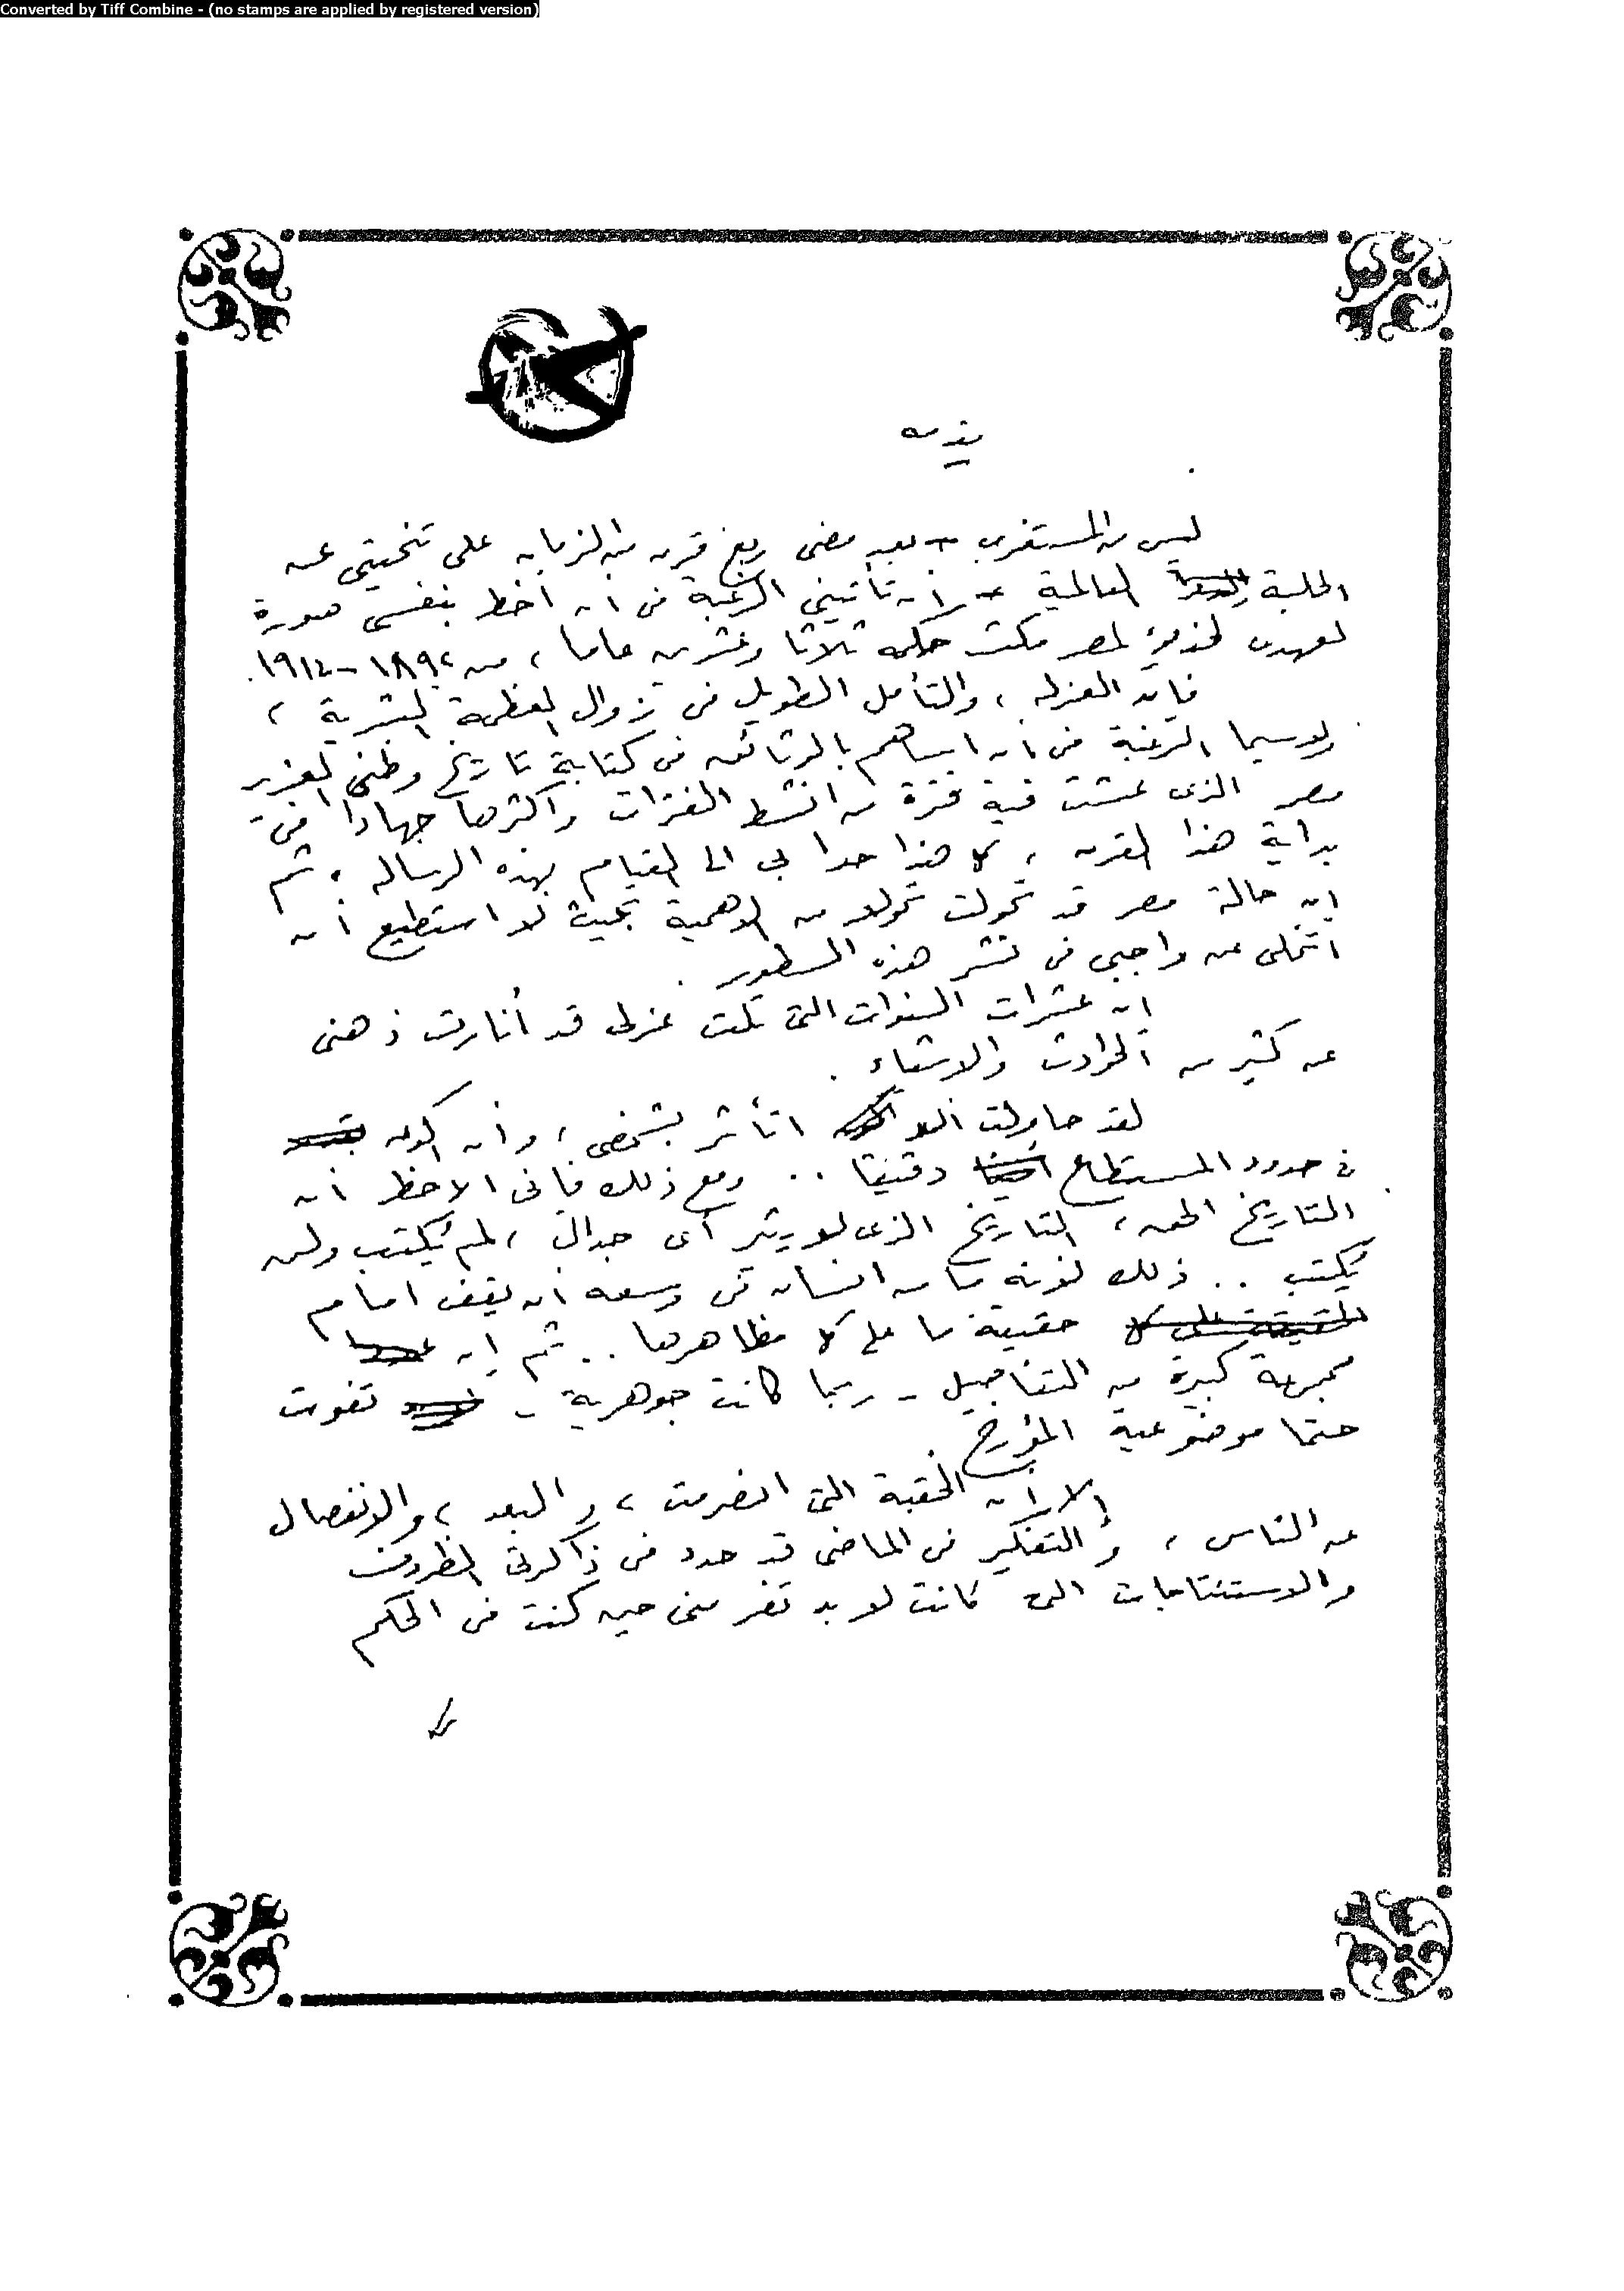 Converted by Tiff Combine - (no stamps are applied by registered version)
ليس من المستغرب - بعد مضى ربع قرن من الزمان على تنحيتى عن
الحلبة العالمية - أن تأتيني الرغبة فى ان أخط بنفسى صورة
لعهدى كخديو لمصر مكث حكمه ثلاثا وعشرين عاما ، من ١٨٩٢ - ١٩١٤.
فان العزله ، والتأمل الطويل فى زوال العظمة البشرية ،
ولاسيما الرغبة فى ان اساهم بالوثائق فى كتابة تاريخ وطنى العزيز
مصر الذى عشت فية فترة من انشط الفترات واكثرها جهادا فى
بداية هذا القرن ، كل هذا حدا بى الى القيام بهذه الرساله ، ثم
ان حالة مصر قد تحولت تحولا من الاهمية بحيث لا استطيع أن
اتخلى عن واجبى فى نشر هذه السطور .
ان عشرات السنوات التى تلت عزلى قد أنارت ذهنى
عن كثير من الحوادث والاشياء .
لقد حاولت الا اتأثر بشخصى ، وأن اكون
فى حدود المستطاع دقيقا .. ومع ذلك فانى الاحظ أن
التاريخ الحق ، التاريخ الذى لا يثير أى جدال ، لم يُكتب ولن
يُكتب .. ذلك لانه ما من انسان فى وسعه أن يقف امام
حقيقة ما على كل مظاهرها .. ثم إن
مجموعة كبيرة من التفاصيل - ربما كانت جوهرية - تفوت
حتما موضوعية المؤرخ .
الا ان الحقبة التى انصرمت ، والبعد ، والانفصال
عن الناس ، والتفكير فى الماضى قد حدد فى ذاكرتى الظروف
والاستنتاجات التى كانت لابد تفر منى حين كنت فى الحكم